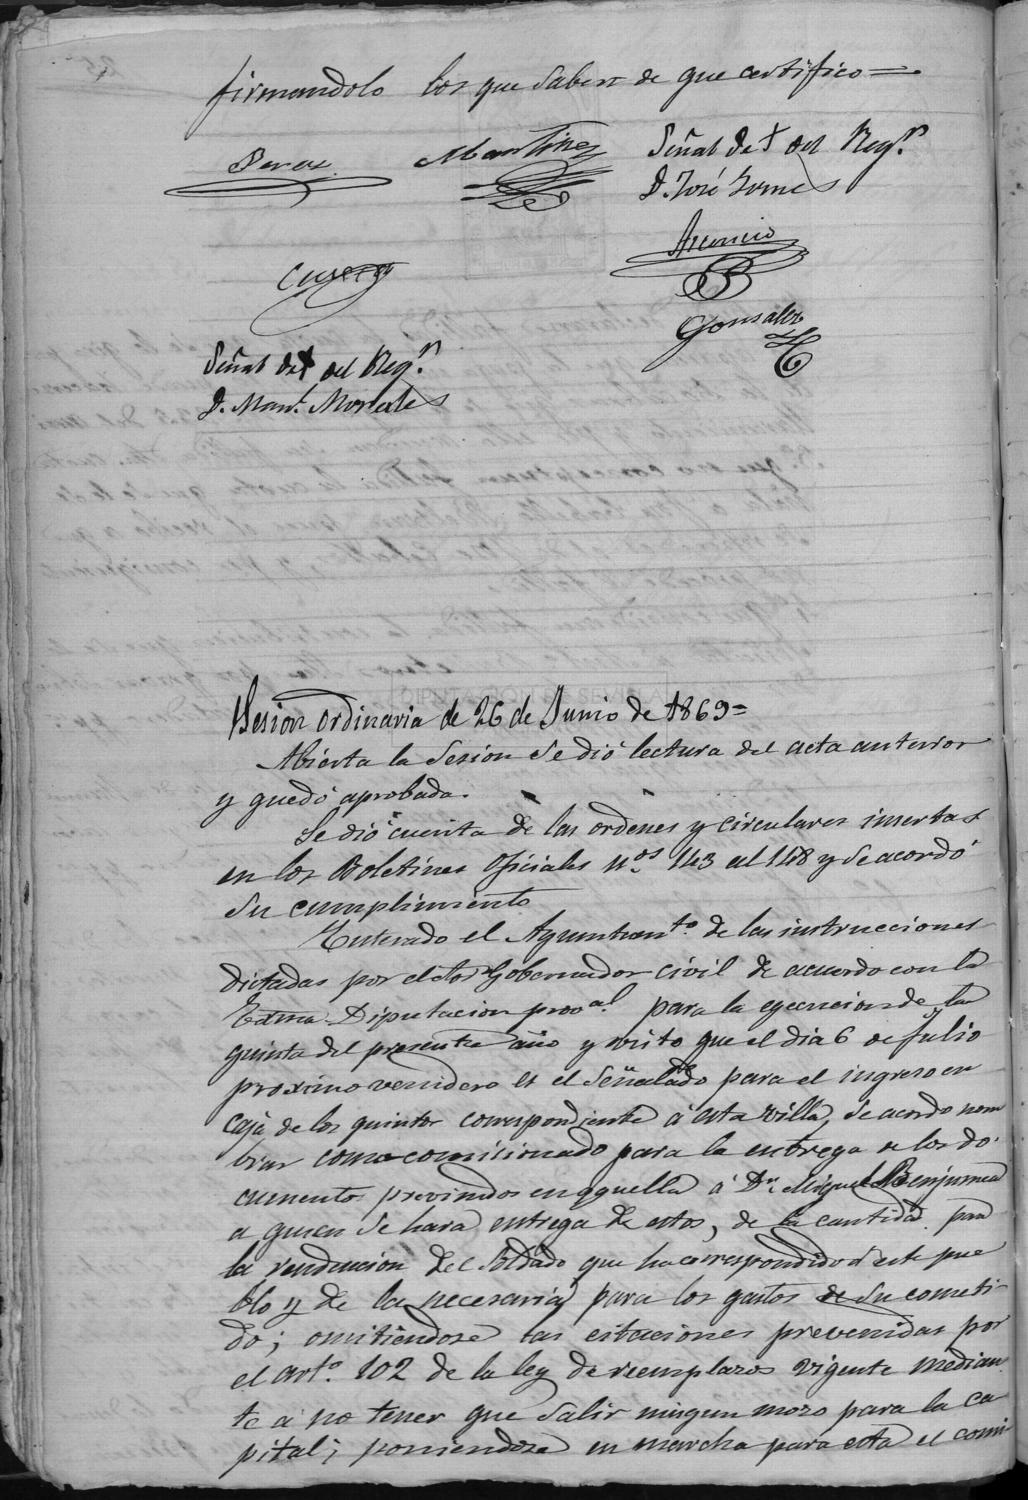 firmandolo los que saben de que certifico=
Perez Martinez Señal de + del Reg.r
D. José Gomes
Asencio
Gonzalez
Señal de + del Reg.r
D. Man.l Morales
DIPUTACION DE SEVILLA
Sesion ordinaria de 26 de Junio de 1869=
Abierta la Sesion se dió lectura del acta anterior
y quedó aprobada.
Se dió cuenta de las ordenes y circulares insertas
en los Boletines Oficiales n.os 143 al 148 y se acordó
su cumplimiento
Enterado el Ayuntam.to de las instrucciones
dictadas por el Sor Gobernador civil de acuerdo con la
Exma Diputacion prov.al para la ejecucion de la
quinta del presente año y visto que el dia 6 de Julio
proximo venidero es el señalado para el ingreso en
caja de los quintos correspondiente á esta villa, se acordo nom
brar como comisionado para la entrega de los do
cumentos prevenidos en aquella á Dn. Miguel Benjumea
a quien se hará entrega de estos, de la cantidad para
la rendencion del Soldado que ha correspondido á este pue
blo y de la necesaria para los gastos de su cometi
do; omitiendose las citaciones prevenidas por
el art.o 102 de la ley de reemplazos vigente median
te á no tener que salir ningun mozo para la ca
pital; poniendose en marcha para esta el comi